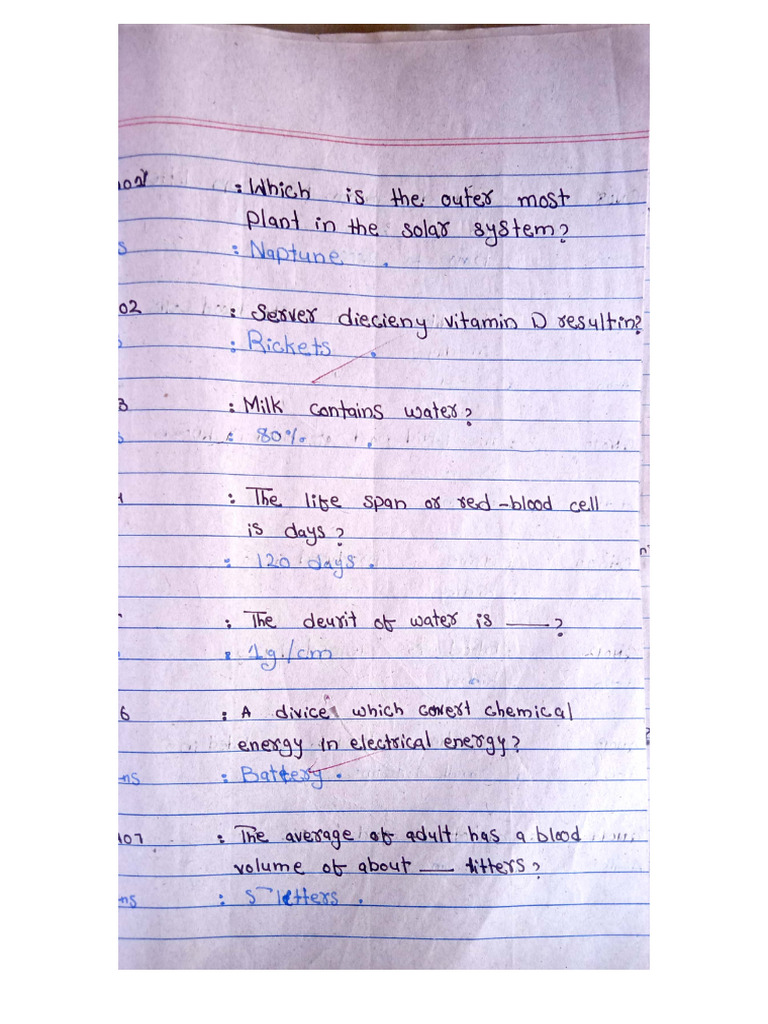 102 : Which is the outer most
plant in the solar system?
s : Naptune .
02 : Server diecieny vitamin D resultin?
: Rickets .
3 : Milk contains water?
s : 80% .
: The life span or red-blood cell
is days?
: 120 days .
: The deurit of water is ___ ?
: 1g/cm
6 : A divice which covert chemical
energy in electrical energy?
ns : Battery .
107 : The average of adult has a blood
volume of about ___ litters?
ns : 5 letters .